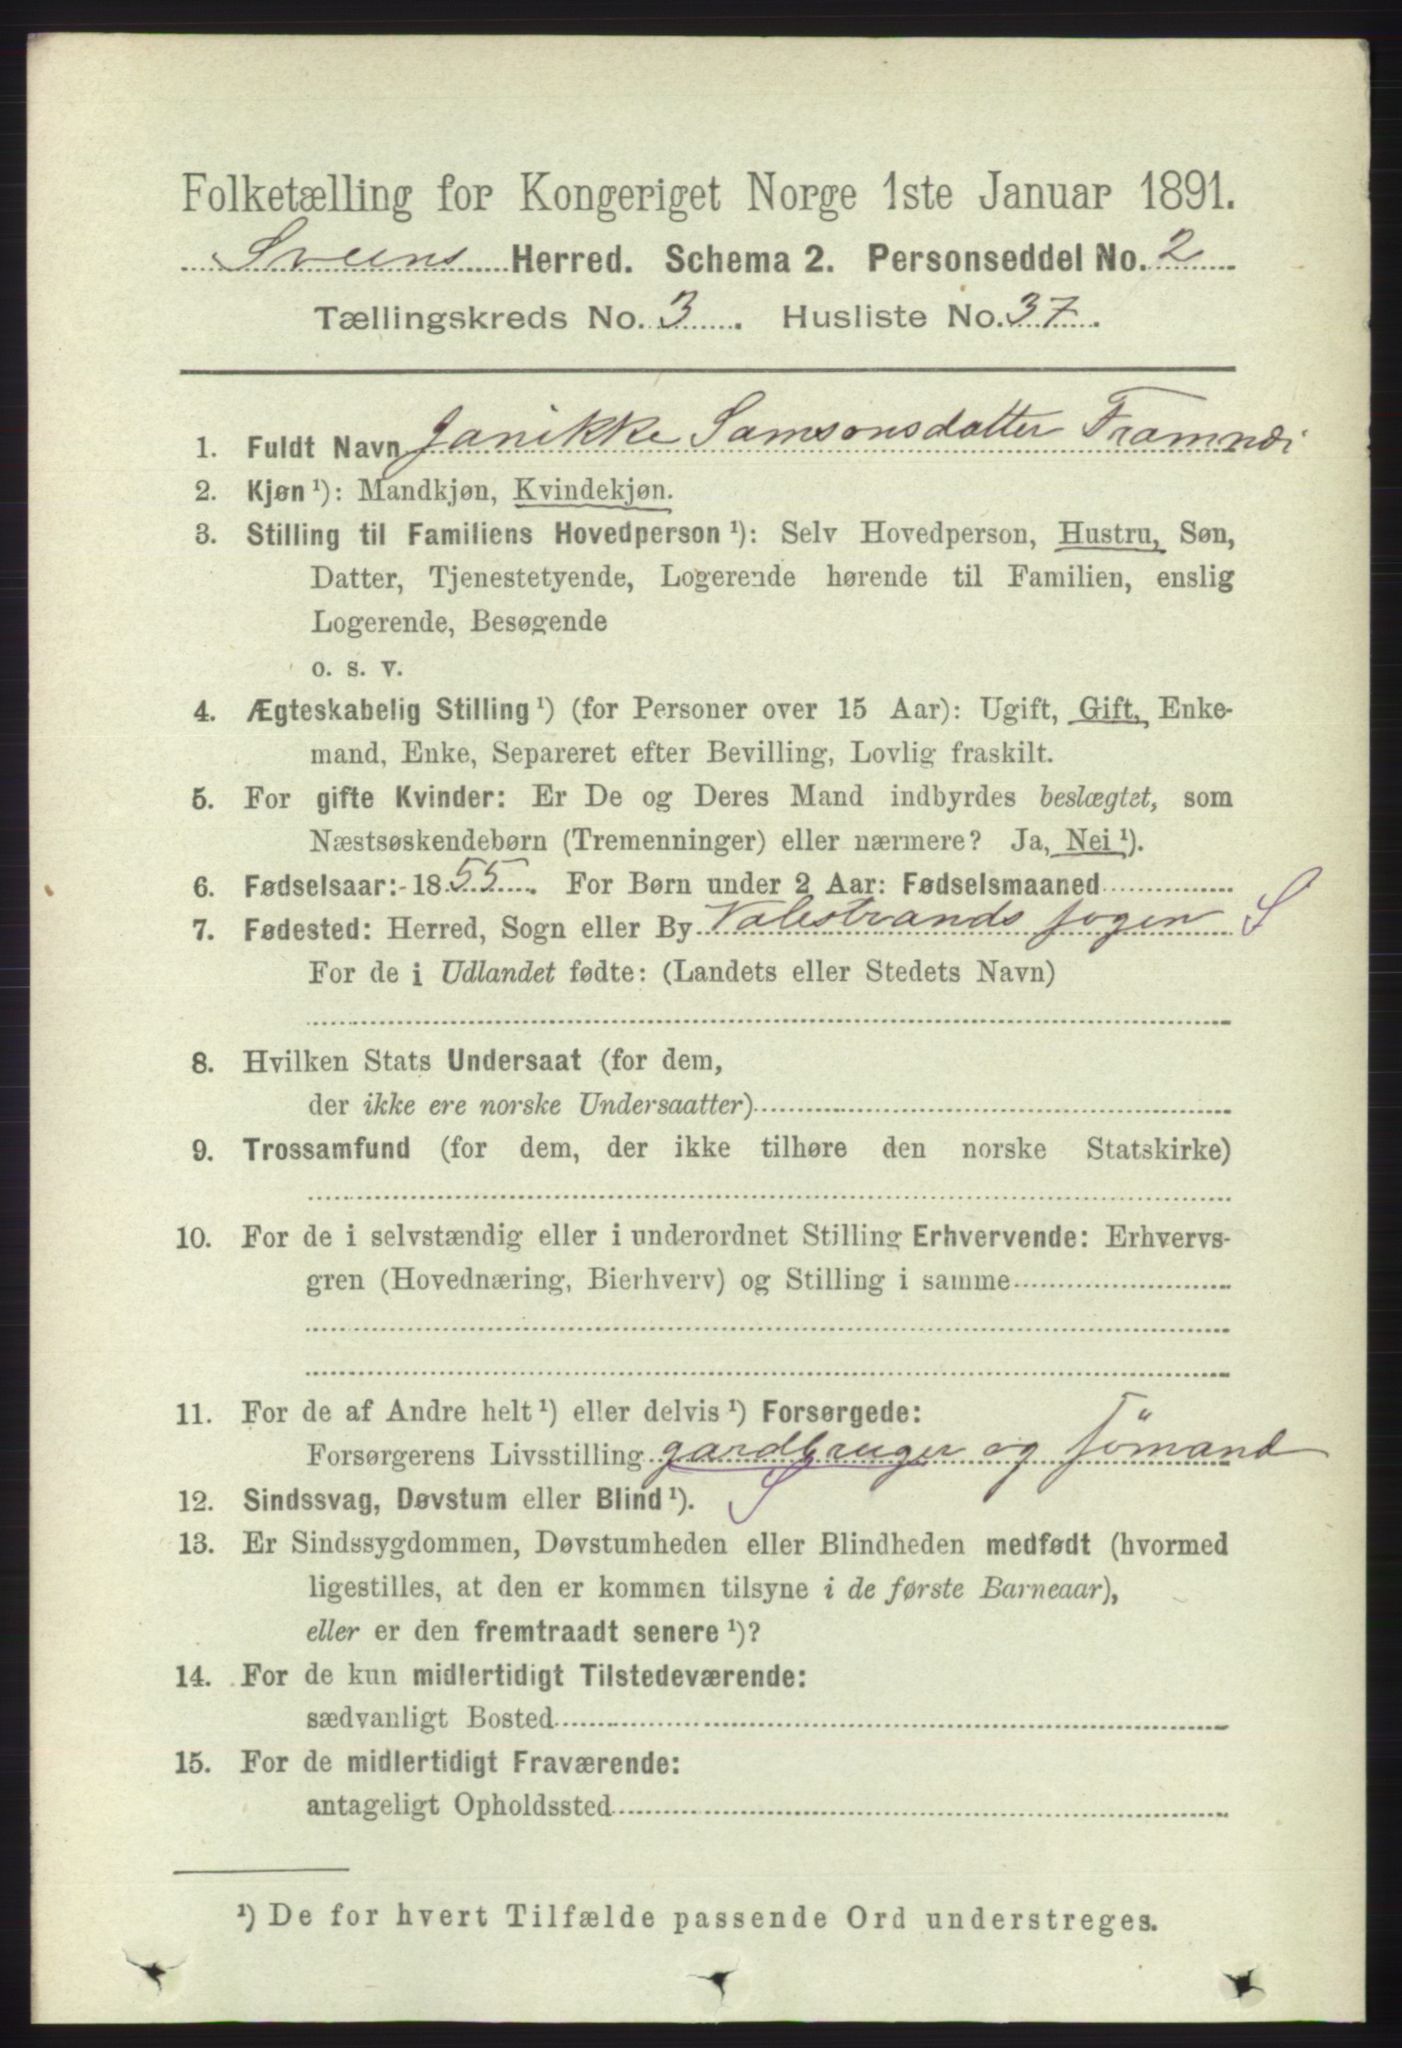 Folketælling for Kongeriget Norge 1ste Januar 1891.
Sveens Herred. Schema 2. Personseddel No. 2
Tællingskreds No. 3. Husliste No. 37.
1. Fuldt Navn Janikke Samsonsdatter Framnæs
2. Kjøn ¹): Mandkjøn, Kvindekjøn.
3. Stilling til Familiens Hovedperson ¹): Selv Hovedperson, Hustru, Søn,
Datter, Tjenestetyende, Logerende hørende til Familien, enslig
Logerende, Besøgende
o. s. v.
4. Ægteskabelig Stilling ¹) (for Personer over 15 Aar): Ugift, Gift, Enke-
mand, Enke, Separeret efter Bevilling, Lovlig fraskilt.
5. For gifte Kvinder: Er De og Deres Mand indbyrdes beslægtet, som
Næstsøskendebørn (Tremenninger) eller nærmere? Ja, Nei ¹).
6. Fødselsaar: 1855. For Børn under 2 Aar: Fødselsmaaned
7. Fødested: Herred, Sogn eller By Valestrands sogn S
For de i Udlandet fødte: (Landets eller Stedets Navn)
8. Hvilken Stats Undersaat (for dem,
der ikke ere norske Undersaatter)
9. Trossamfund (for dem, der ikke tilhøre den norske Statskirke)
10. For de i selvstændig eller i underordnet Stilling Erhvervende: Erhvervs-
gren (Hovednæring, Bierhverv) og Stilling i samme
11. For de af Andre helt ¹) eller delvis ¹) Forsørgede:
Forsørgerens Livsstilling gardbruger og sömand
12. Sindssvag, Døvstum eller Blind ¹). S
13. Er Sindssygdommen, Døvstumheden eller Blindheden medfødt (hvormed
ligestilles, at den er kommen tilsyne i de første Barneaar),
eller er den fremtraadt senere ¹)?
14. For de kun midlertidigt Tilstedeværende:
sædvanligt Bosted
15. For de midlertidigt Fraværende:
antageligt Opholdssted
¹) De for hvert Tilfælde passende Ord understreges.